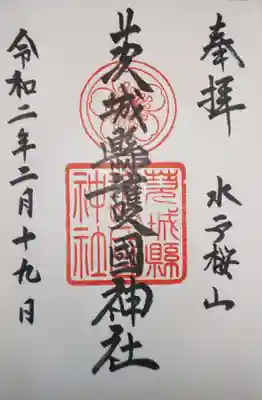 奉拝
水戸桜山
茨城縣護國神社
茨城縣
神社
令和二年二月十九日